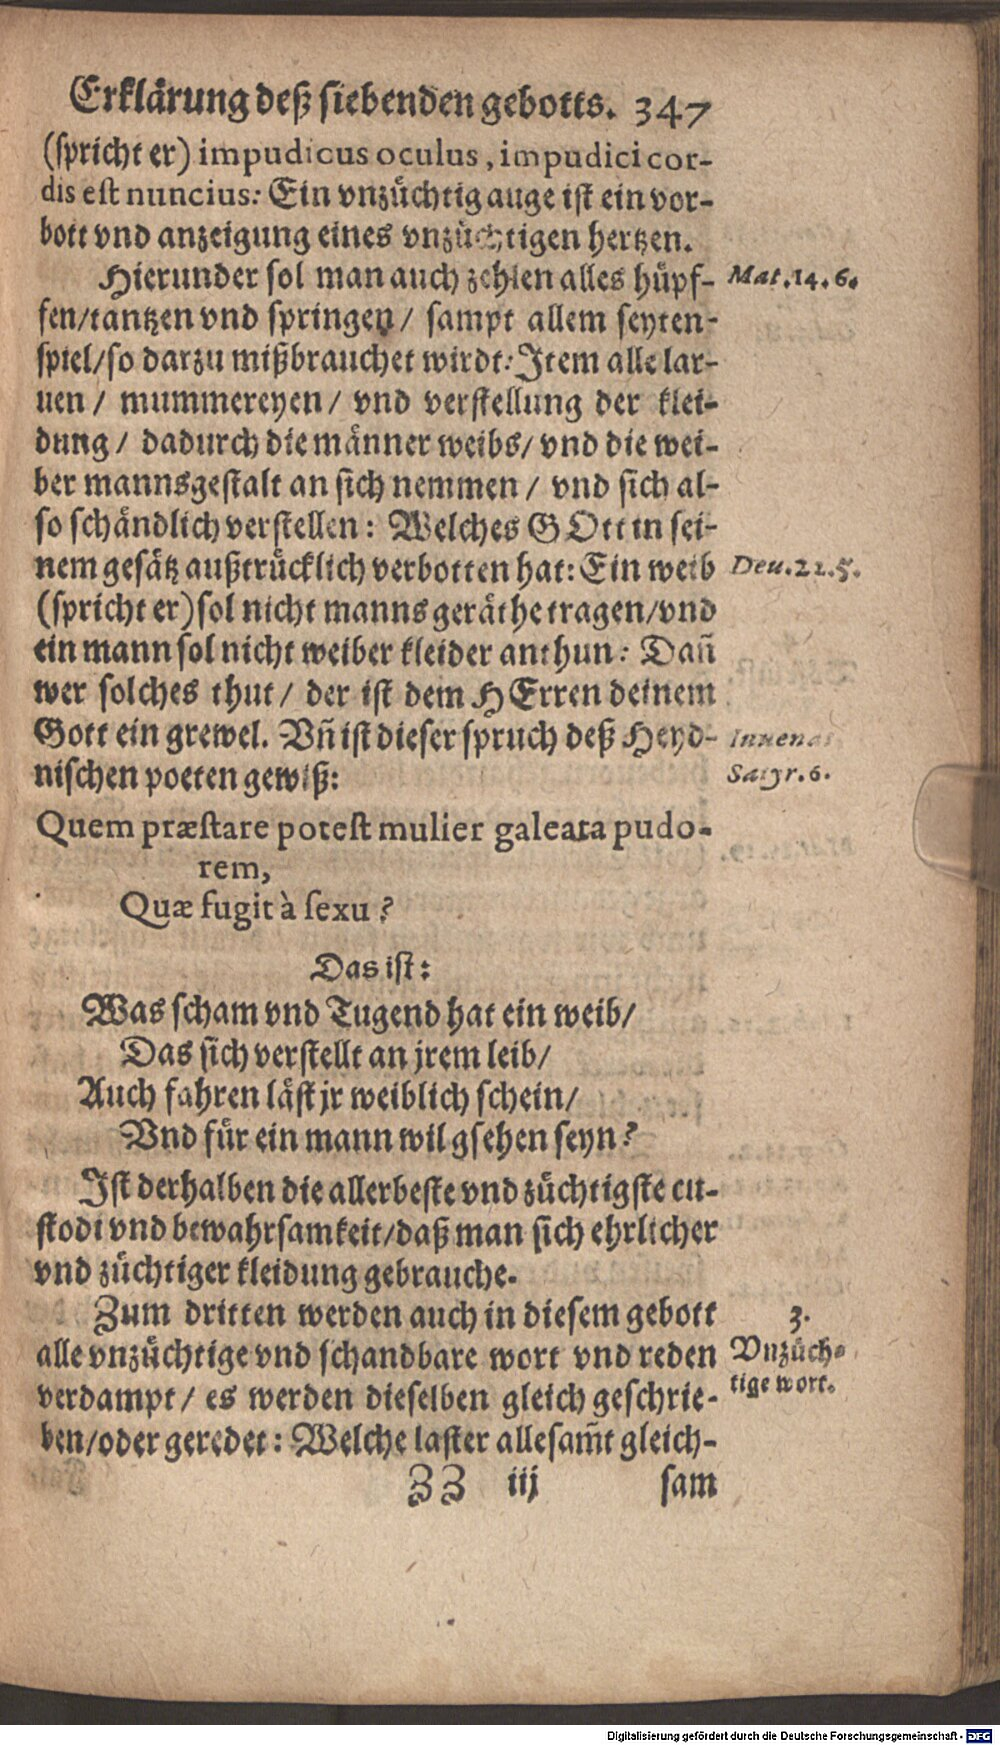 Erklärung deß siebenden gebotts. 347
(spricht er) impudicus oculus, impudici cor-
dis est nuncius: Ein vnzüchtig auge ist ein vor-
bott vnd anzeigung eines vnzüchtigen hertzen.
Hierunder sol man auch zehlen alles hüpf- Mat.14.6.
fen/tantzen vnd springen/ sampt allem seyten-
spiel/so darzu mißbrauchet wirdt: Item alle lar-
uen/ mummereyen/ vnd verstellung der klei-
dung/ dadurch die männer weibs/ vnd die wei-
ber mannsgestalt an sich nemmen/ vnd sich al-
so schändlich verstellen: Welches GOtt in sei-
nem gesätz außtrücklich verbotten hat: Ein weib Deu.22.5.
(spricht er) sol nicht manns geräthe tragen/vnd
ein mann sol nicht weiber kleider anthun: Dañ
wer solches thut/ der ist dem HErren deinem
Gott ein grewel. Vñ ist dieser spruch deß Heyd- Iuuenal
nischen poeten gewiß: Satyr.6.
Quem præstare potest mulier galeata pudo-
rem,
Quæ fugit à sexu?
Das ist:
Was scham vnd Tugend hat ein weib/
Das sich verstellt an jrem leib/
Auch fahren läst jr weiblich schein/
Vnd für ein mann wil gsehen seyn?
Ist derhalben die allerbeste vnd züchtigste cu-
stodi vnd bewahrsamkeit/daß man sich ehrlicher
vnd züchtiger kleidung gebrauche.
Zum dritten werden auch in diesem gebott 3.
alle vnzüchtige vnd schandbare wort vnd reden Vnzüch-
verdampt/ es werden dieselben gleich geschrie- tige wort.
ben/oder geredet: Welche laster allesam̃t gleich-
ZZ iij sam
Digitalisierung gefördert durch die Deutsche Forschungsgemeinschaft - DFG